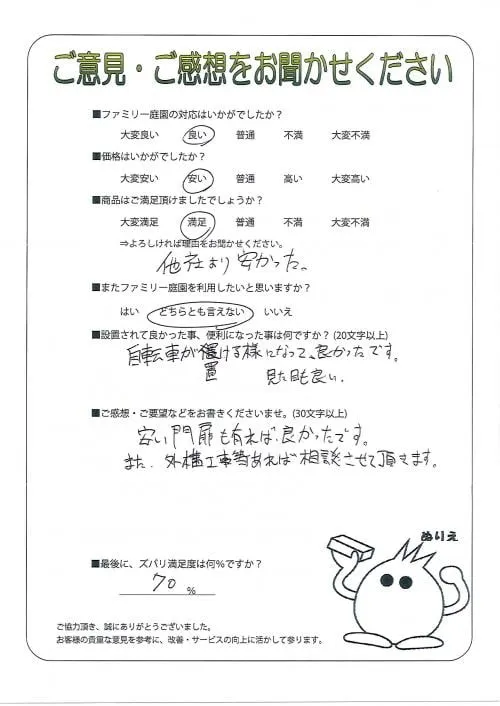 ご意見・ご感想をお聞かせください
■ファミリー庭園の対応はいかがでしたか?
大変良い 良い 普通 不満 大変不満
■価格はいかがでしたか?
大変安い 安い 普通 高い 大変高い
■商品はご満足頂けましたでしょうか?
大変満足 満足 普通 不満 大変不満
⇒よろしければ理由をお聞かせください。
他社より安かった。
■またファミリー庭園を利用したいと思いますか?
はい どちらとも言えない いいえ
■設置されて良かった事、便利になった事は何ですか?(20文字以上)
自転車が置ける様になって、良かったです。
置
見た目も良い。
■ご感想・ご要望などをお書きくださいませ。(30文字以上)
安い門扉も有れば良かったです。
また、外構工事等あれば相談させて頂きます。
ぬりえ
■最後に、ズバリ満足度は何%ですか?
70 %
ご協力頂き、誠にありがとうございました。
お客様の貴重な意見を参考に、改善・サービスの向上に活かして参ります。